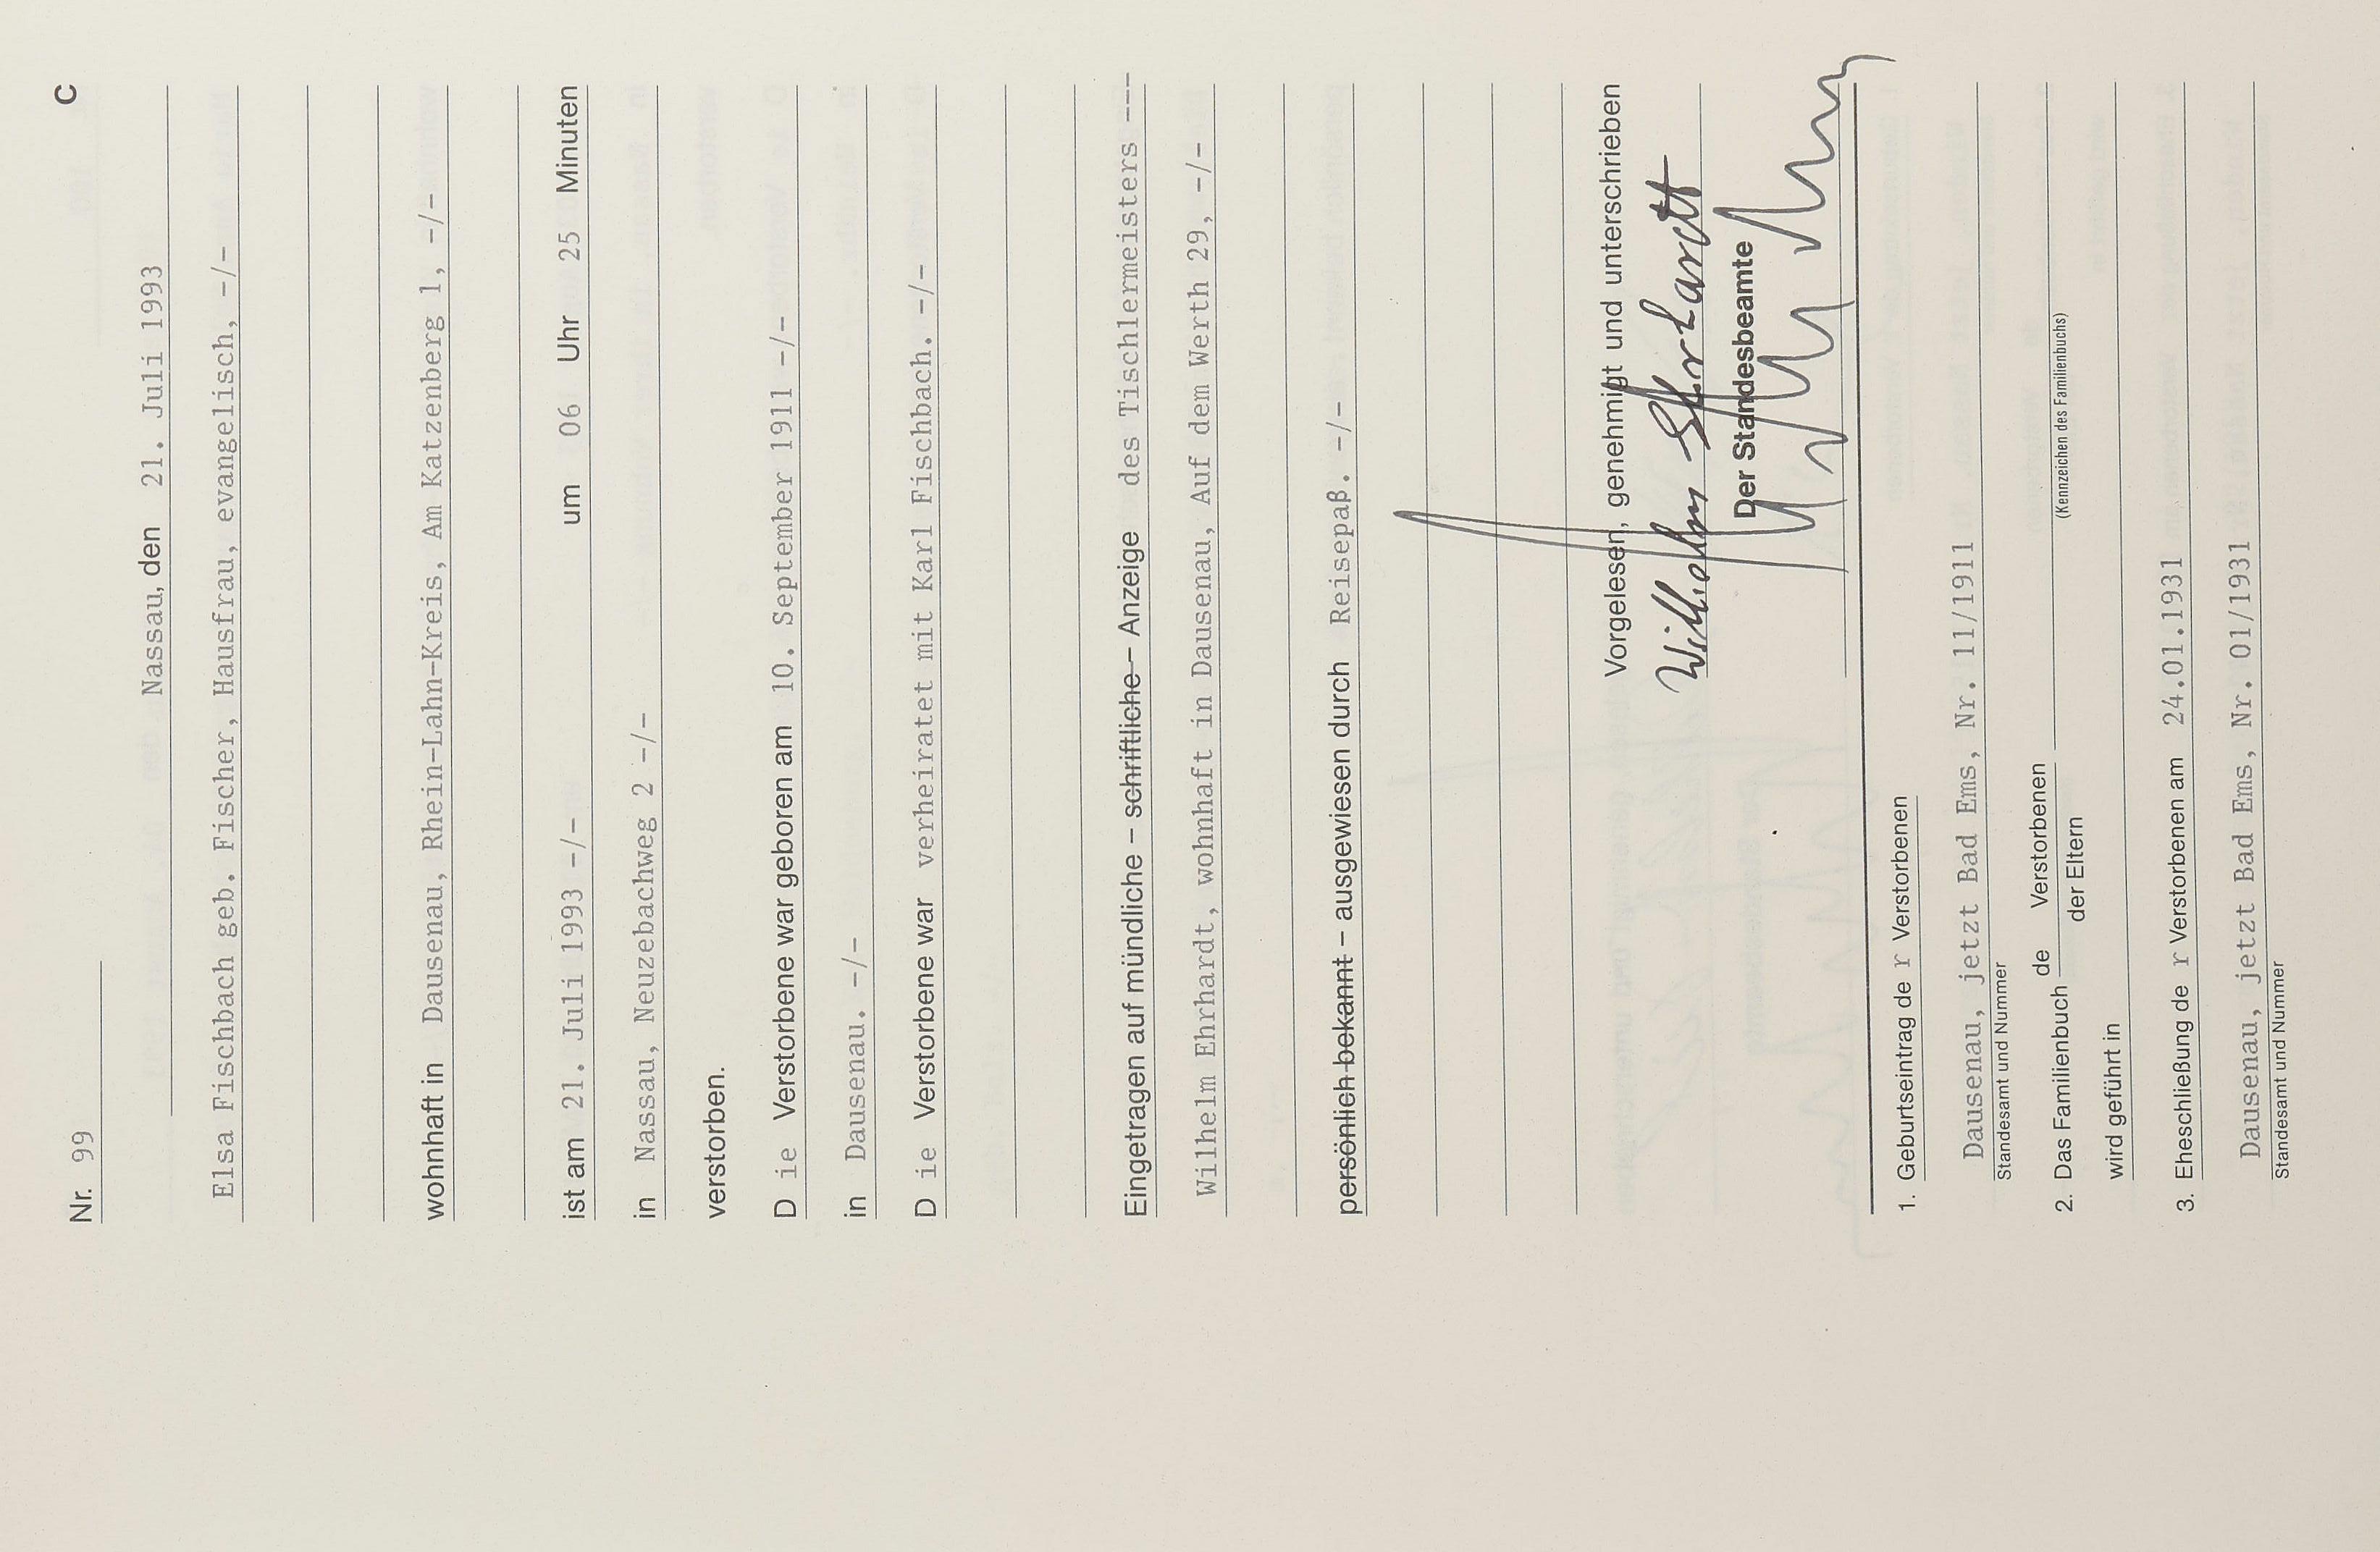 C
Nr. 99
Nassau, den 21. Juli 1993
Elsa Fischbach geb. Fischer, Hausfrau, evangelisch, -/-
wohnhaft in Dausenau, Rhein-Lahn-Kreis, Am Katzenberg 1, -/-
ist am 21. Juli 1993 -/- um 06 Uhr 25 Minuten
in Nassau, Neuzebachweg 2 -/-
verstorben.
D ie Verstorbene war geboren am 10. September 1911 -/-
in Dausenau. -/-
D ie Verstorbene war verheiratet mit Karl Fischbach. -/-
Eingetragen auf mündliche – schriftliche – Anzeige des Tischlermeisters ---
Wilhelm Ehrhardt, wohnhaft in Dausenau, Auf dem Werth 29, -/-
persönlich bekannt – ausgewiesen durch Reisepaß. -/-
Vorgelesen, genehmigt und unterschrieben
Wilhelm Ehrhardt
Der Standesbeamte
1. Geburtseintrag de r Verstorbenen
Dausenau, jetzt Bad Ems, Nr. 11/1911
Standesamt und Nummer
2. Das Familienbuch de Verstorbenen
der Eltern
(Kennzeichen des Familienbuchs)
wird geführt in
3. Eheschließung de r Verstorbenen am 24.01.1931
Dausenau, jetzt Bad Ems, Nr. 01/1931
Standesamt und Nummer